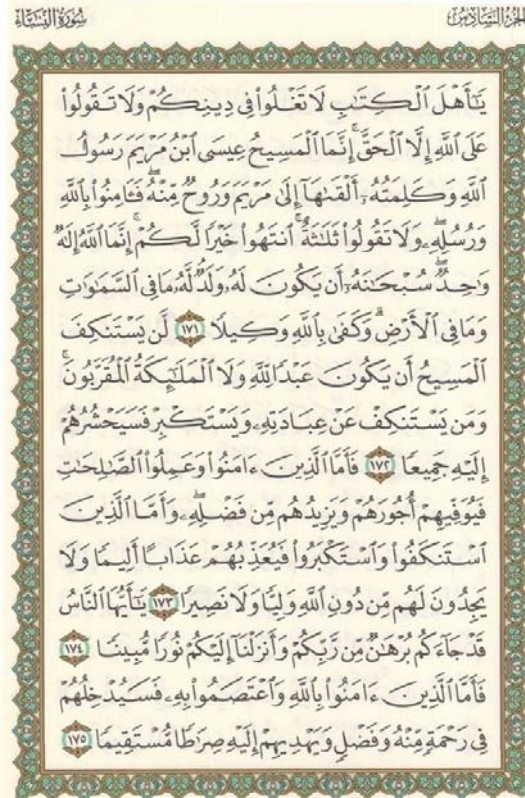 الجزء السادس
سورة النساء
يَٰٓأَهْلَ ٱلْكِتَٰبِ لَا تَغْلُوا۟ فِى دِينِكُمْ وَلَا تَقُولُوا۟
عَلَى ٱللَّهِ إِلَّا ٱلْحَقَّ ۚ إِنَّمَا ٱلْمَسِيحُ عِيسَى ٱبْنُ مَرْيَمَ رَسُولُ
ٱللَّهِ وَكَلِمَتُهُۥٓ أَلْقَىٰهَآ إِلَىٰ مَرْيَمَ وَرُوحٌ مِّنْهُ ۖ فَـَٔامِنُوا۟ بِٱللَّهِ
وَرُسُلِهِۦ ۖ وَلَا تَقُولُوا۟ ثَلَٰثَةٌ ۚ ٱنتَهُوا۟ خَيْرًا لَّكُمْ ۚ إِنَّمَا ٱللَّهُ إِلَٰهٌ
وَٰحِدٌ ۖ سُبْحَٰنَهُۥٓ أَن يَكُونَ لَهُۥ وَلَدٌ ۘ لَّهُۥ مَا فِى ٱلسَّمَٰوَٰتِ
وَمَا فِى ٱلْأَرْضِ ۗ وَكَفَىٰ بِٱللَّهِ وَكِيلًا ١٧١ لَّن يَسْتَنكِفَ
ٱلْمَسِيحُ أَن يَكُونَ عَبْدًا لِّلَّهِ وَلَا ٱلْمَلَٰٓئِكَةُ ٱلْمُقَرَّبُونَ ۚ
وَمَن يَسْتَنكِفْ عَنْ عِبَادَتِهِۦ وَيَسْتَكْبِرْ فَسَيَحْشُرُهُمْ
إِلَيْهِ جَمِيعًا ١٧٢ فَأَمَّا ٱلَّذِينَ ءَامَنُوا۟ وَعَمِلُوا۟ ٱلصَّٰلِحَٰتِ
فَيُوَفِّيهِمْ أُجُورَهُمْ وَيَزِيدُهُم مِّن فَضْلِهِۦ ۖ وَأَمَّا ٱلَّذِينَ
ٱسْتَنكَفُوا۟ وَٱسْتَكْبَرُوا۟ فَيُعَذِّبُهُمْ عَذَابًا أَلِيمًا وَلَا
يَجِدُونَ لَهُم مِّن دُونِ ٱللَّهِ وَلِيًّا وَلَا نَصِيرًا ١٧٣ يَٰٓأَيُّهَا ٱلنَّاسُ
قَدْ جَآءَكُم بُرْهَٰنٌ مِّن رَّبِّكُمْ وَأَنزَلْنَآ إِلَيْكُمْ نُورًا مُّبِينًا ١٧٤
فَأَمَّا ٱلَّذِينَ ءَامَنُوا۟ بِٱللَّهِ وَٱعْتَصَمُوا۟ بِهِۦ فَسَيُدْخِلُهُمْ
فِى رَحْمَةٍ مِّنْهُ وَفَضْلٍ وَيَهْدِيهِمْ إِلَيْهِ صِرَٰطًا مُّسْتَقِيمًا ١٧٥